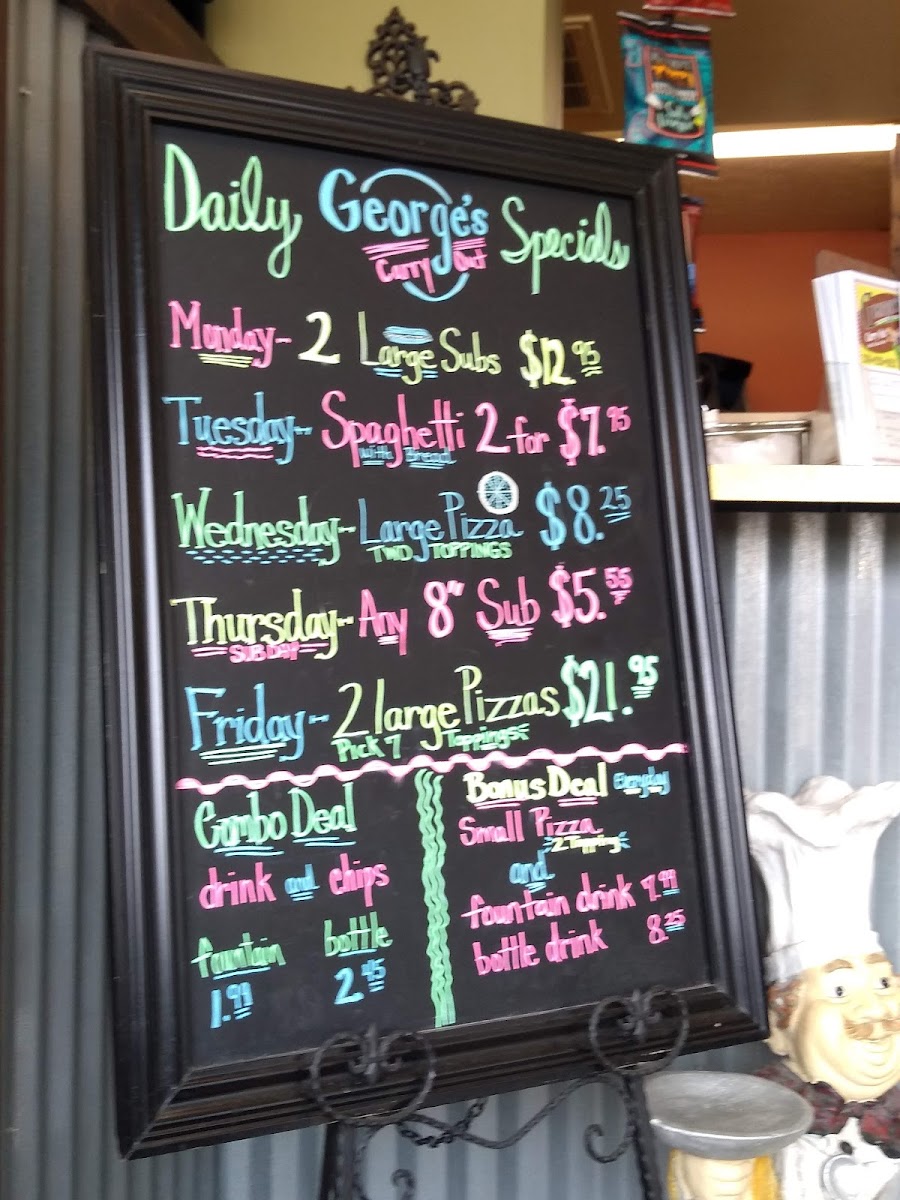 Daily George's Specials
Carry Out
Monday- 2 Large Subs $12.95
Tuesday- Spaghetti 2 for $7.95
with Bread
Wednesday- Large Pizza $8.25
TWO TOPPINGS
Thursday- Any 8" Sub $5.55
SUB DAY
Friday- 2 large Pizzas $21.95
Pick 7 Toppings
Combo Deal
drink and chips
fountain bottle
1.99 2.45
Bonus Deal Everyday
Small Pizza
2 Topping
and
fountain drink 7.99
bottle drink 8.25